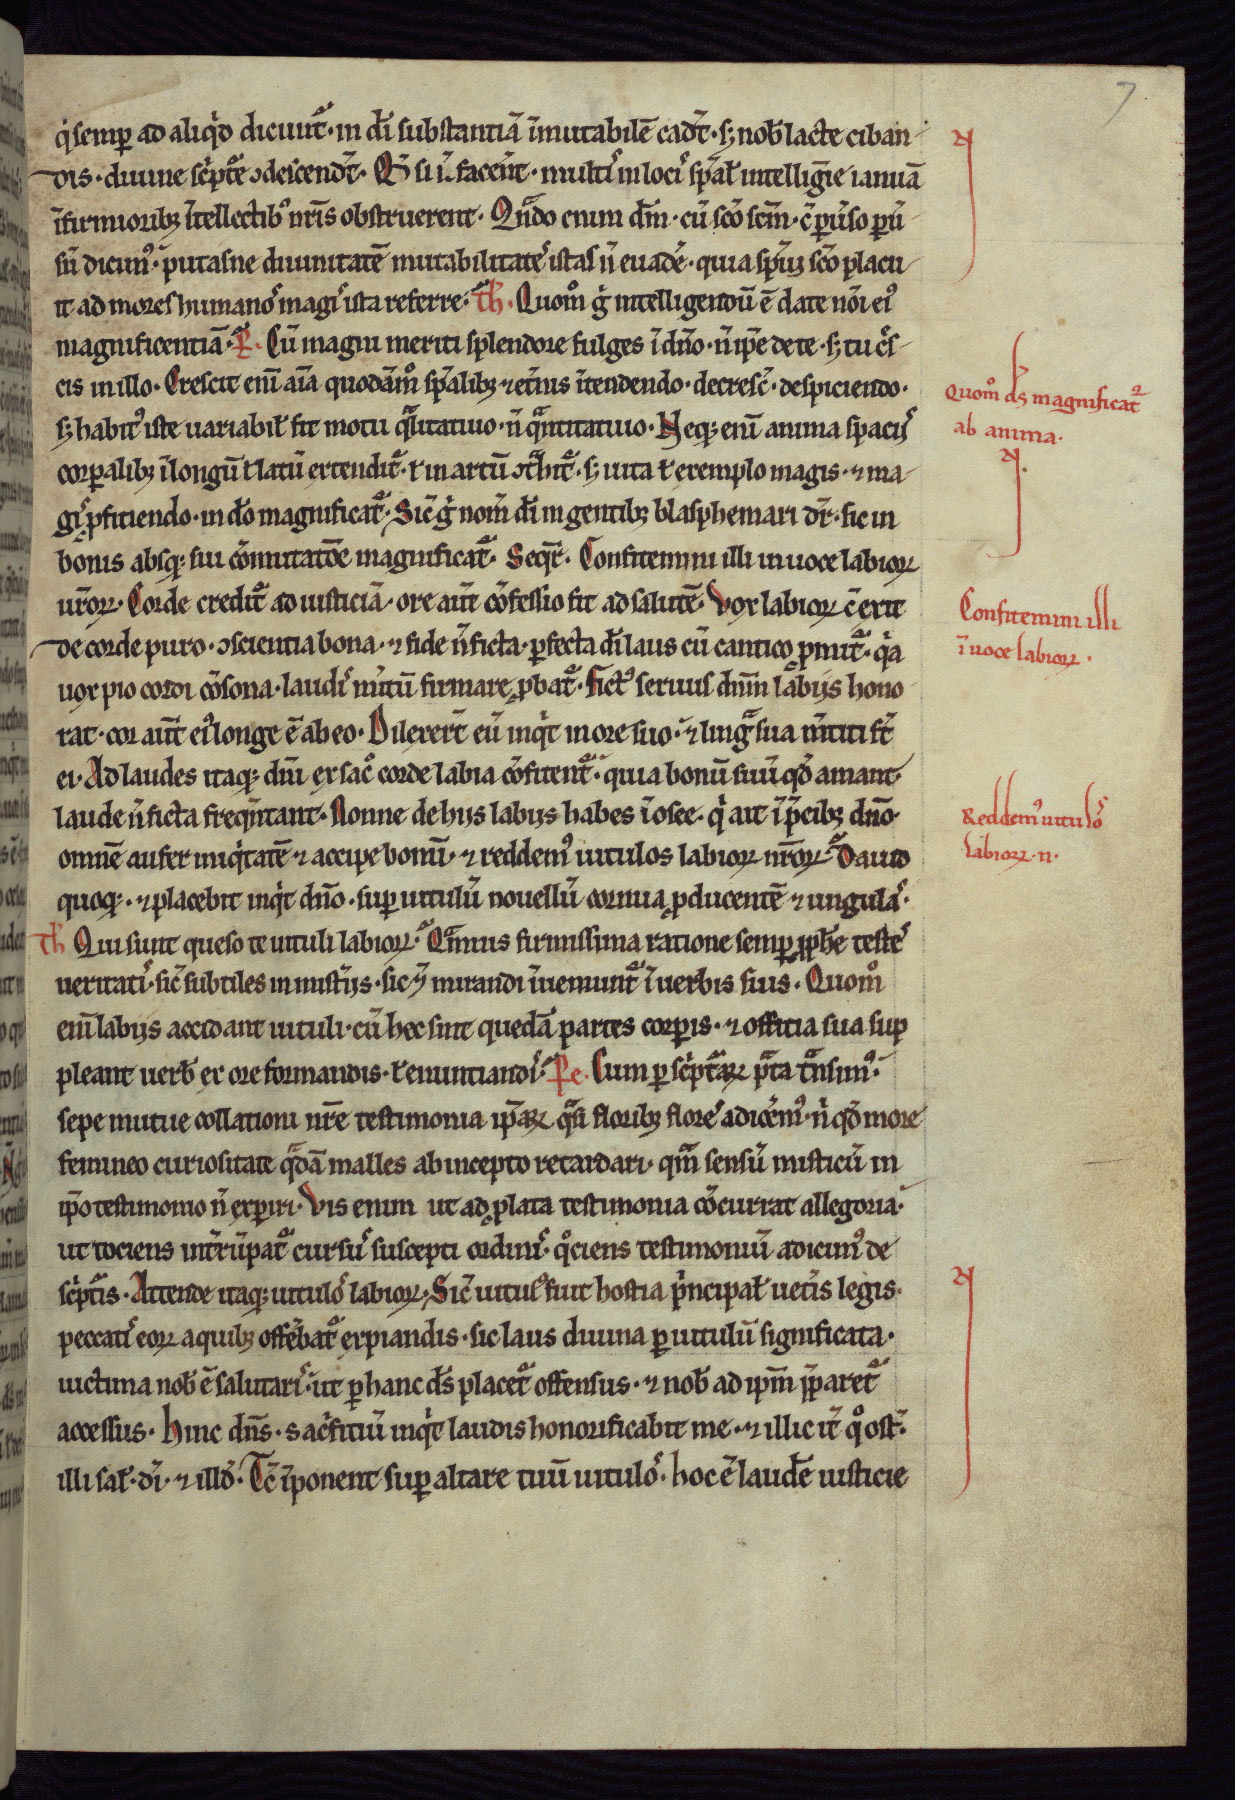 7
q̇semꝑ ad aliq̇d dicunt᷑ · in dī substantiā īmutabilē cadt̄ · sꝫ nob̄ lacte ciban
dis · diuine sc̄pte᷑ ɔdescendt̄ · Q̄ si ī facent̄ · multı̉ in locı̉ sp̄al̄ intelligīe ianuā
īfirmioribꝫ ītellectibꝰ nr̄is obstruerent · Qn̄do enim dn̄m · cū sc̄o sc̄m · c̄ ꝑuso ꝑū
sū dicimꝰ · putasne diuinitatē mutabilitatē istaſ n̄ euadē · quia sp̄ui sc̄o placu
it ad mores humanoſ magı̉ ista referre · Th̄ · Quom̊ g̊ intelligendū ē date nōi eiꝰ
magnificentiā · P̄ · Cū magni meriti splendore fulges ī dn̄o · n̄ ip̄e de te · sꝫ tu c̄s
cis in illo · Crescit eni̅ aīa quodām̊ sp̄alibꝫ ⁊ et̄nis ītendendo · decresc̄ · despiciendo ·
sꝫ habitꝰ iste uariabil̄ fit motu qͣlitatiuo · n̄ qͣntitatiuo · Neqꝫ eni̅ anima spacijs
corꝑalibꝫ ī longū ł latū extendit᷑ · ł in artū ɔthit᷑ · sꝫ uita ł exemplo magis · ⁊ ma
gı̉ ꝓfitiendo · in dō magnificat᷑ · Sic̄ g̊ nom̄ dī in gentibꝫ blasphemari dr̄ · sic in
bonis absqꝫ sui cōmutatōe magnificat᷑ · Seqr̄ · Confitemini illi in uoce labioꝝ
ur̄oꝝ · Corde credit᷑ ad iusticiā · ore aut̄ cōfessio fit ad salutē · Vox labioꝝ c̄ exit
de corde puro · ɔscientia bona · ⁊ fide n̄ ficta · ꝑfecta dī laus cū cantico ꝓmit᷑ · qͥa
uox pio cordi cōsona · laudı̉ mı̉tū firmare ꝓbat᷑ · Fictꝰ seruus dn̄m labijs hono
rat · cor aut̄ eiꝰ longe ē ab eo · Dilexer̄t eū inqͥt in ore suo · ⁊ lingͣ sua mn̄titi sī
ei · Ad laudes itaqꝫ dn̄i ex sac̊ corde labia cōfitent᷑ · quia bonū suū qd̄ amant
laude n̄ ficta freqn̄tant · Nonne de hijs labijs habes ī osee · qͥ ait īp̄cibꝫ dn̄o ·
omnē aufer iniqͥtatē ⁊ accipe bonū · ⁊ reddemꝰ uitulos labioꝝ nr̄oꝝ · Dauid
quoqꝫ · ⁊ placebit inqͥt dn̄o · suꝑ uitulū nouellū cornua ꝓducentē ⁊ ungulaſ ·
Th̄ Qui sunt queso te uituli labioꝝ · Q̄mus firmissima ratione semꝑ ꝓph̄e testeſ
ueritatı̉ · sic̄ subtiles in mist̄ijs · sic ⁊ mirandi īueniunt᷑ ī uerbis suis · Quom̊
eni̅ labijs accidant uituli · cū hec sint quedā partes corꝑis · ⁊ offitia sua sup
pleant uerb̄ ex ore formandis · ł enuntiandı̉ · Pe · Cum ꝑ sc̄pt᷑aꝝ pͣta tͣnsimꝰ ·
sepe mutue collationi nr̄e testimonia ip̄aꝝ qͣsi floribꝫ floreſ adicēmꝰ · n̄ qd̄ more
femineo curiositate qͣdā malles ab incepto retardari · qm̄ sensū misticū in
ip̄o testimonio n̄ exꝑiri · Vis enim ut ad ꝓlata testimonia cōcurrat allegoria ·
ut tociens int̄rūpat᷑ cursꝰ suscepti ordinı̉ · qͦciens testimoniū adicimꝰ de
sc̄pt᷑is · Attende itaqꝫ uituloſ labioꝝ · Sic̄ uitulꝰ fuit hostia pͥncipal̄ uet̄is legis ·
peccatı̉ eoꝝ a quibꝫ offēbat᷑ expiandis · sic laus diuina ꝑ uitulū significata ·
uictima nob̄ ē salutarı̉ · ut ꝑ hanc ds̄ placet᷑ offensus · ⁊ nob̄ ad ip̄m p̄paret᷑
accessus · Hinc dn̄s · sac̄fitiū inqͥt laudis honorificabit me · ⁊ illic it̄ qͦ ost̄ ·
illi sal̄ · dı̉ · ⁊ illd̄ · Tc̄ īponent suꝑ altare tuū uituloſ · hoc ē laudē iusticie
Quom̊ ds̄ magnificat᷑
ab anima ·
Confitemini illi
ī uoce labioꝝ ·
Reddemꝰ uituloſ
labioꝝ · n ·